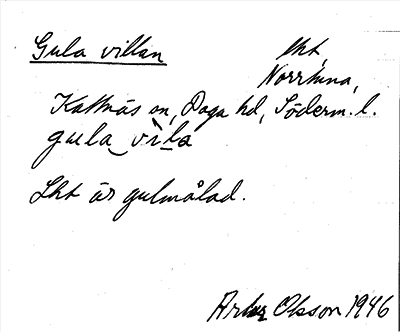 Gula villan lht,
Norrtuna,
Kattnäs sn, Daga hd, Söderm. l.
gula vìla
Lht är gulmålad.
Olsson 1946